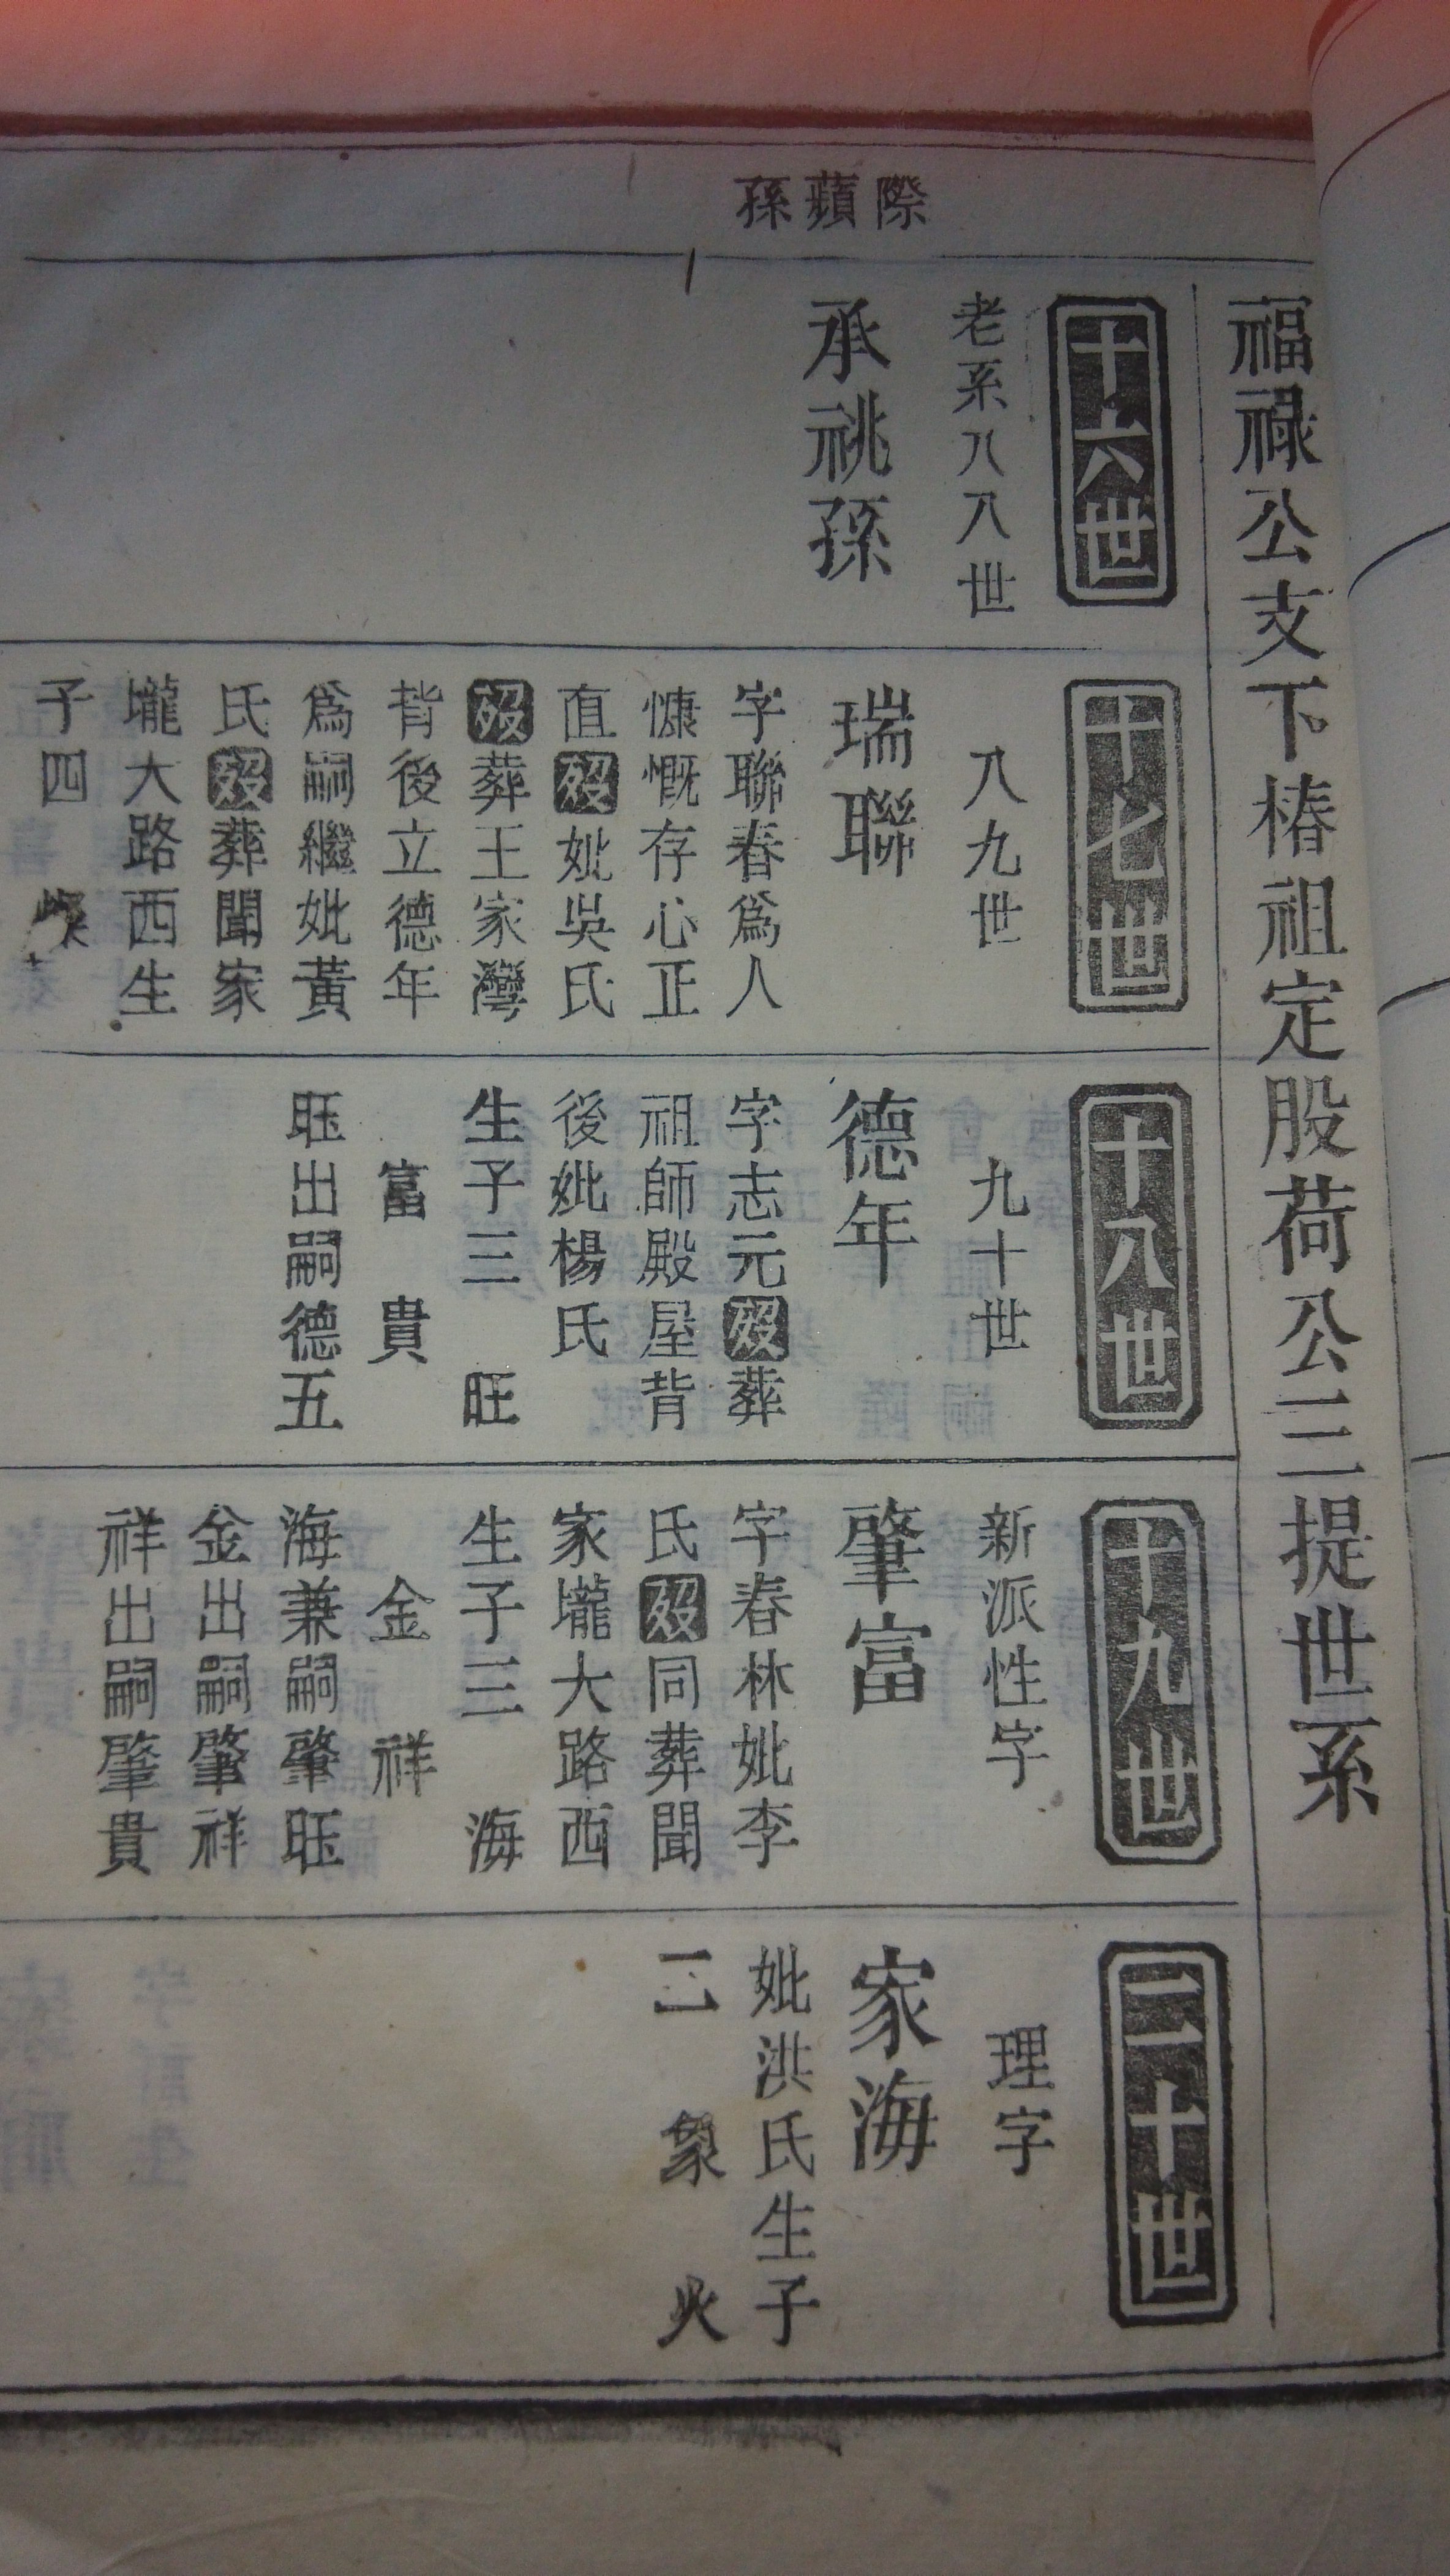 福祿公支下椿祖定股荷公三提世系
際蘋孫
十六世
老系八八世
承祧孫
十七世
八九世
瑞聯
字聯春爲人
慷慨存心正
直歿妣吳氏
歿葬王家灣
背後立德年
爲嗣繼妣黃
氏歿葬聞家
壠大路西生
子四
十八世
九十世
德年
字志元歿葬
祖師殿屋背
後妣楊氏
生子三 旺
富 貴
旺出嗣德五
十九世
新派性字
肇富
字春林妣李
氏歿同葬聞
家壠大路西
生子三 海
金 祥
海兼嗣肇旺
金出嗣肇祥
祥出嗣肇貴
二十世
理字
家海
妣洪氏生子
二 象 火